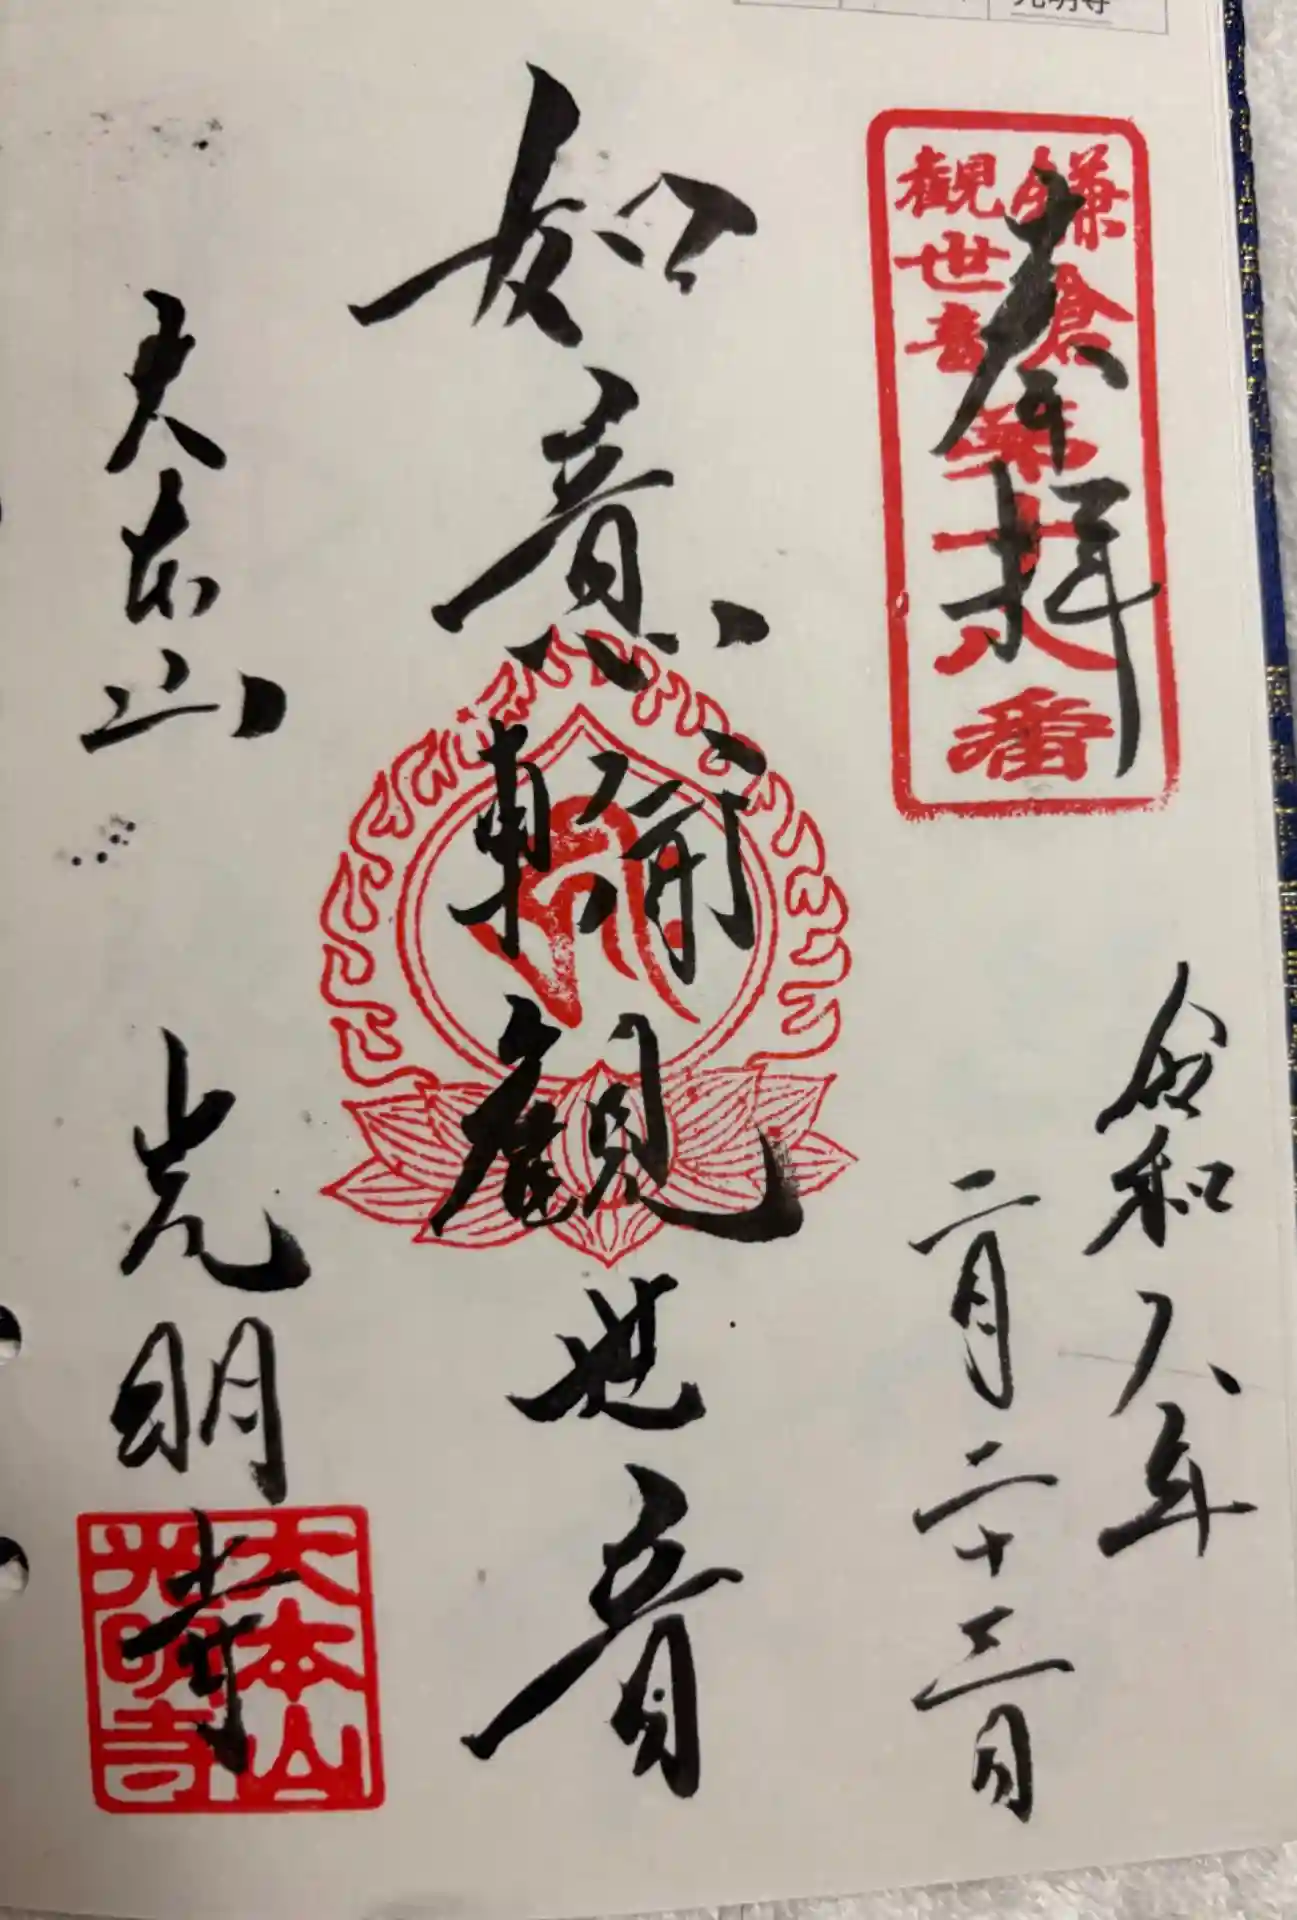 光明寺
鎌倉
觀世音
第十八番
奉拝
令和八年
二月二十三日
如意輪観世音
大本山 光明寺
大本山
光明寺